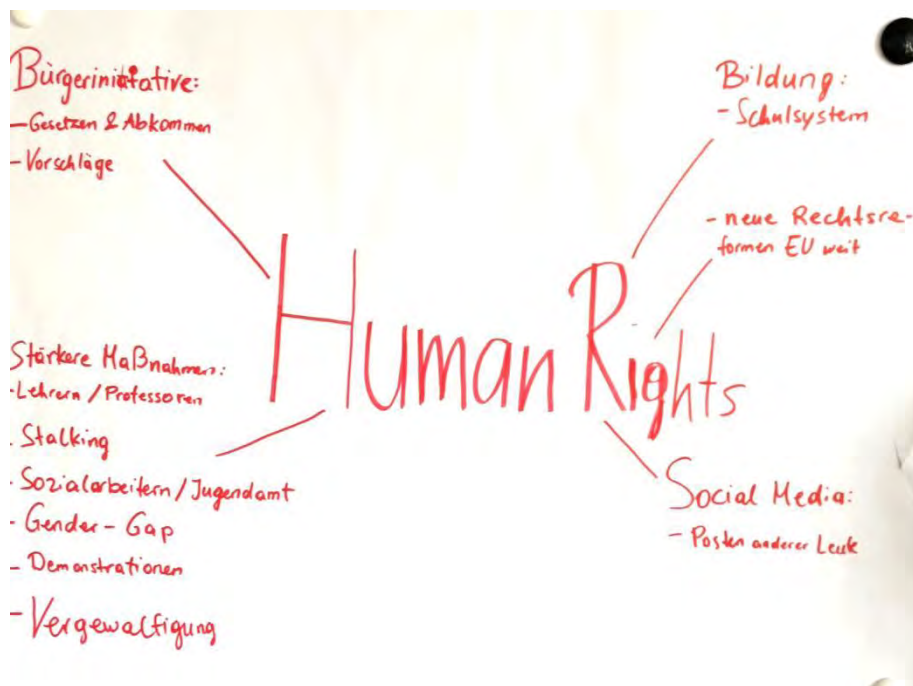 Bürgerinitiative:
- Gesetzen & Abkommen
- Vorschläge
Bildung:
- Schulsystem
- neue Rechtsre-
formen EU weit
Human Rights
Stärkere Maßnahmen:
- Lehrern / Professoren
- Stalking
- Sozialarbeitern / Jugendamt
- Gender - Gap
- Demonstrationen
- Vergewaltigung
Social Media:
- Posten anderer Leute